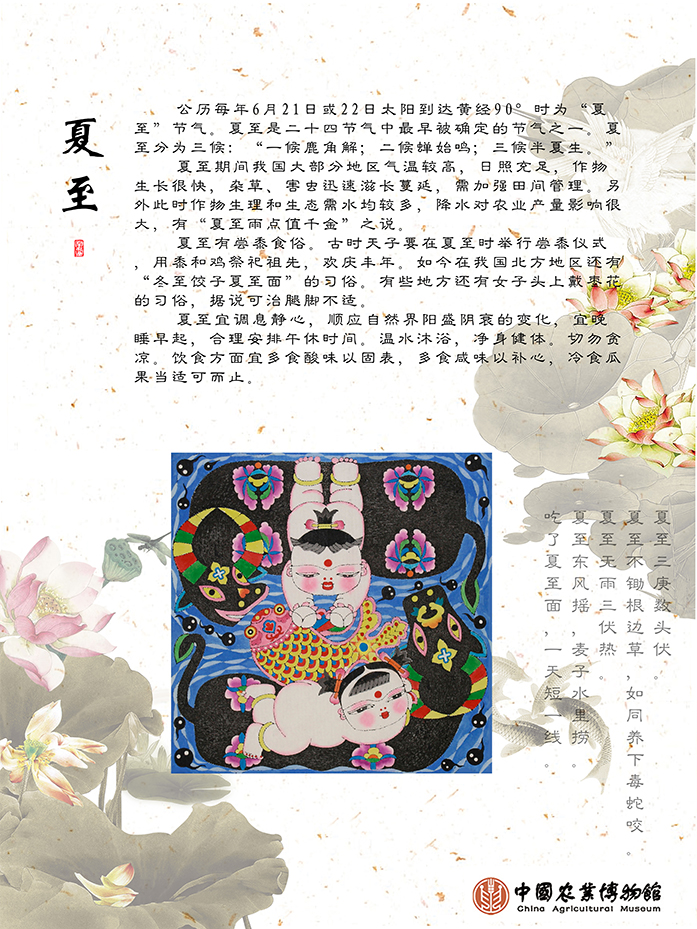 夏至
公历每年6月21日或22日太阳到达黄经90°时为“夏
至”节气。夏至是二十四节气中最早被确定的节气之一。夏
至分为三候：“一候鹿角解；二候蝉始鸣；三候半夏生。”
夏至期间我国大部分地区气温较高，日照充足，作物
生长很快，杂草、害虫迅速滋长蔓延，需加强田间管理。另
外此时作物生理和生态需水均较多，降水对农业产量影响很
大，有“夏至雨点值千金”之说。
夏至有尝黍食俗。古时天子要在夏至时举行尝黍仪式
，用黍和鸡祭祀祖先，欢庆丰年。如今在我国北方地区还有
“冬至饺子夏至面”的习俗。有些地方还有女子头上戴枣花
的习俗，据说可治腿脚不适。
夏至宜调息静心，顺应自然界阳盛阴衰的变化，宜晚
睡早起，合理安排午休时间。温水沐浴，净身健体。切勿贪
凉。饮食方面宜多食酸味以固表，多食咸味以补心，冷食瓜
果当适可而止。
夏至三庚数头伏。
夏至不锄根边草，如同养下毒蛇咬。
夏至无雨三伏热。
夏至东风摇，麦子水里捞。
吃了夏至面，一天短一线。
中國农業博物館
China Agricultural Museum